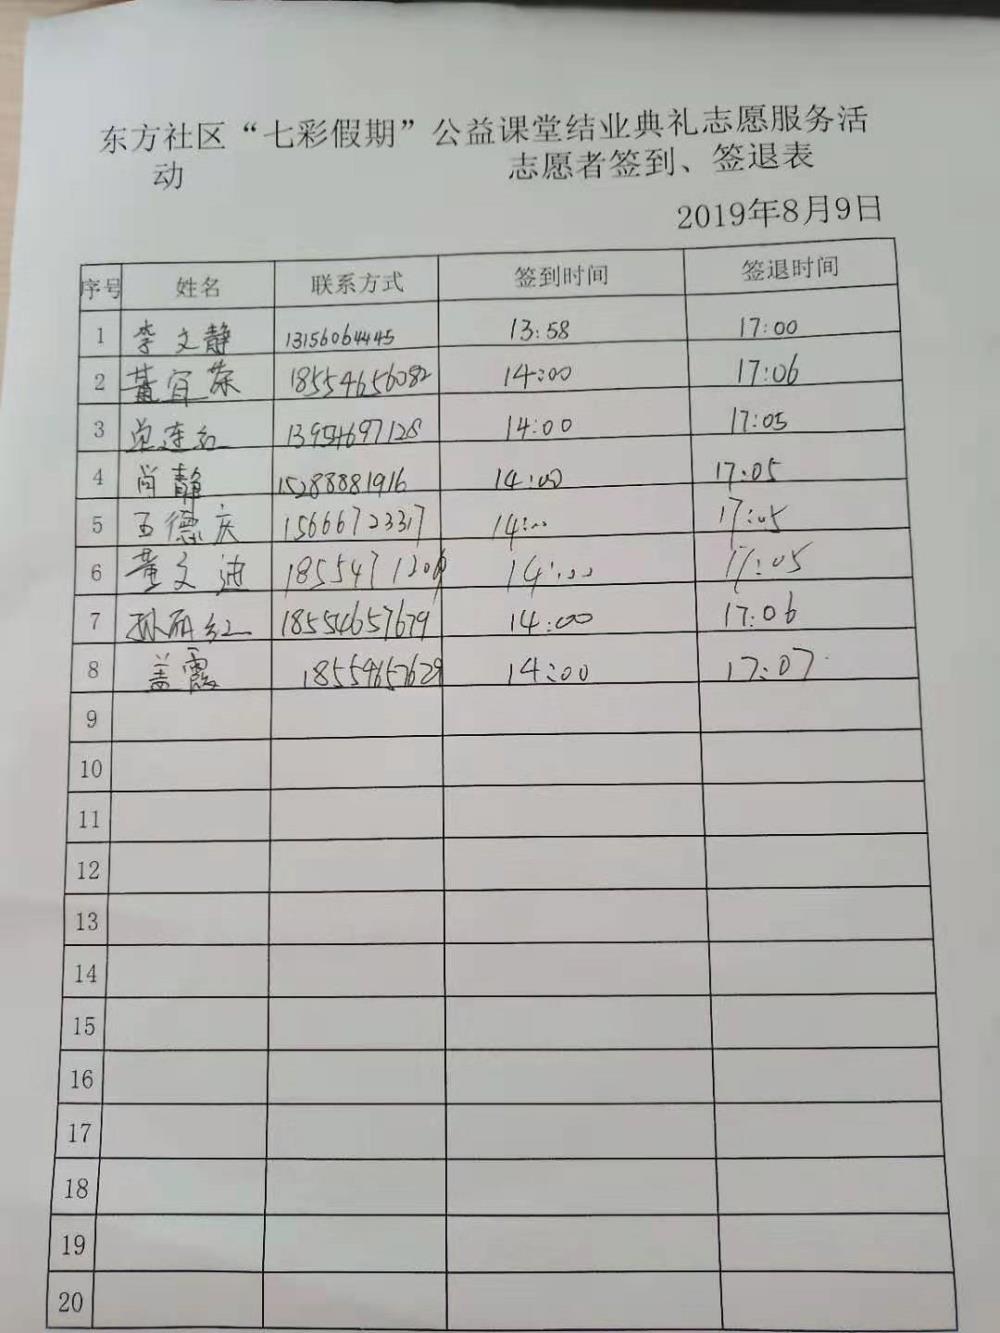 东方社区“七彩假期”公益课堂结业典礼志愿服务活
动 志愿者签到、签退表
2019年8月9日
序号 姓名 联系方式 签到时间 签退时间
1 李文静 13156064445 13:58 17:00
2 黄宜荣 18554656082 14:00 17:06
3 单连红 13954697128 14:00 17:05
4 尚静 15288881916 14:00 17:05
5 王德庆 15666723317 14:00 17:05
6 董文迪 14:00 17:05
7 孙丽红 18554657679 14:00 17:06
8 盖霞 18554657629 14:00 17:07
9
10
11
12
13
14
15
16
17
18
19
20